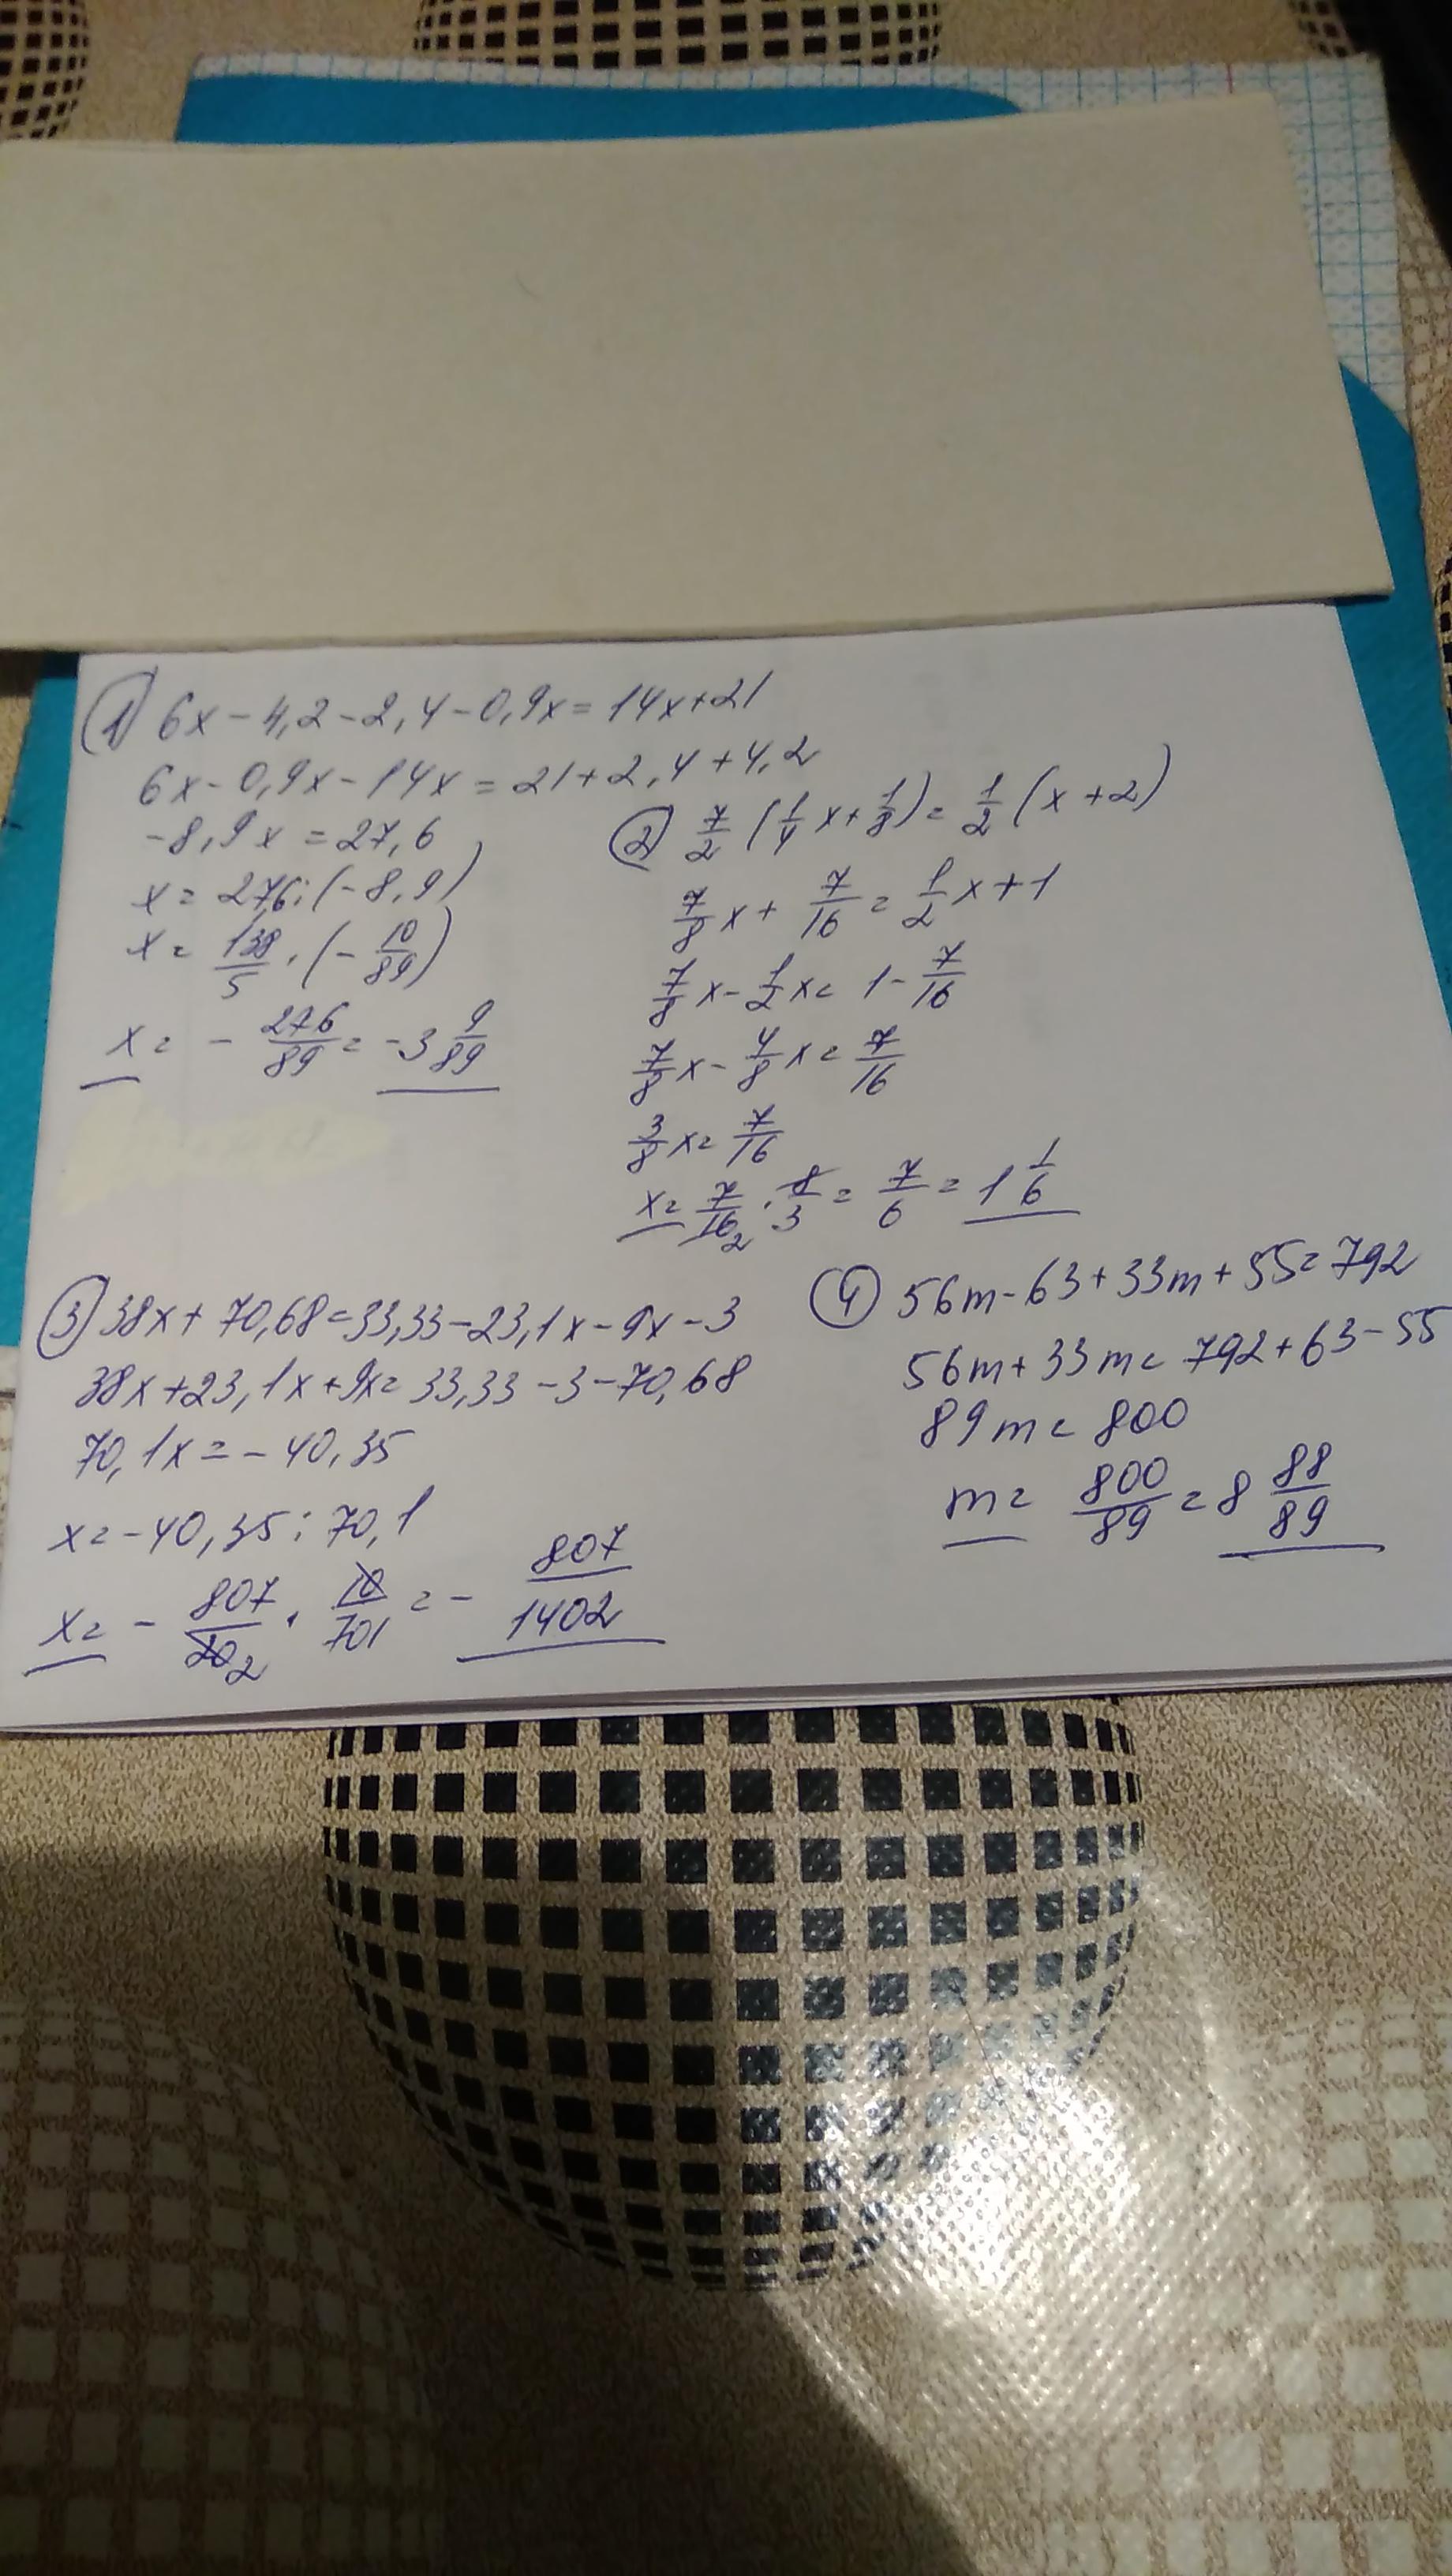 1) 6x - 4,2 - 2,4 - 0,9x = 14x + 21
6x - 0,9x - 14x = 21 + 2,4 + 4,2
-8,9x = 27,6
x = 27,6 : (-8,9)
x = 138/5 · (-10/89)
x = - 276/89 = -3 9/89
2) 7/2 (1/4 x + 1/8) = 1/2 (x + 2)
7/8 x + 7/16 = 1/2 x + 1
7/8 x - 1/2 x = 1 - 7/16
7/8 x - 4/8 x = 7/16
3/8 x = 7/16
x = 7/16 2 · 8/3 = 7/6 = 1 1/6
3) 38x + 70,68 = 33,33 - 23,1x - 9x - 3
38x + 23,1x + 9x = 33,33 - 3 - 70,68
70,1x = - 40,35
x = - 40,35 : 70,1
x = - 807/20 2 · 10/701 = - 807/1402
4) 56m - 63 + 33m + 55 = 792
56m + 33m = 792 + 63 - 55
89m = 800
m = 800/89 = 8 88/89